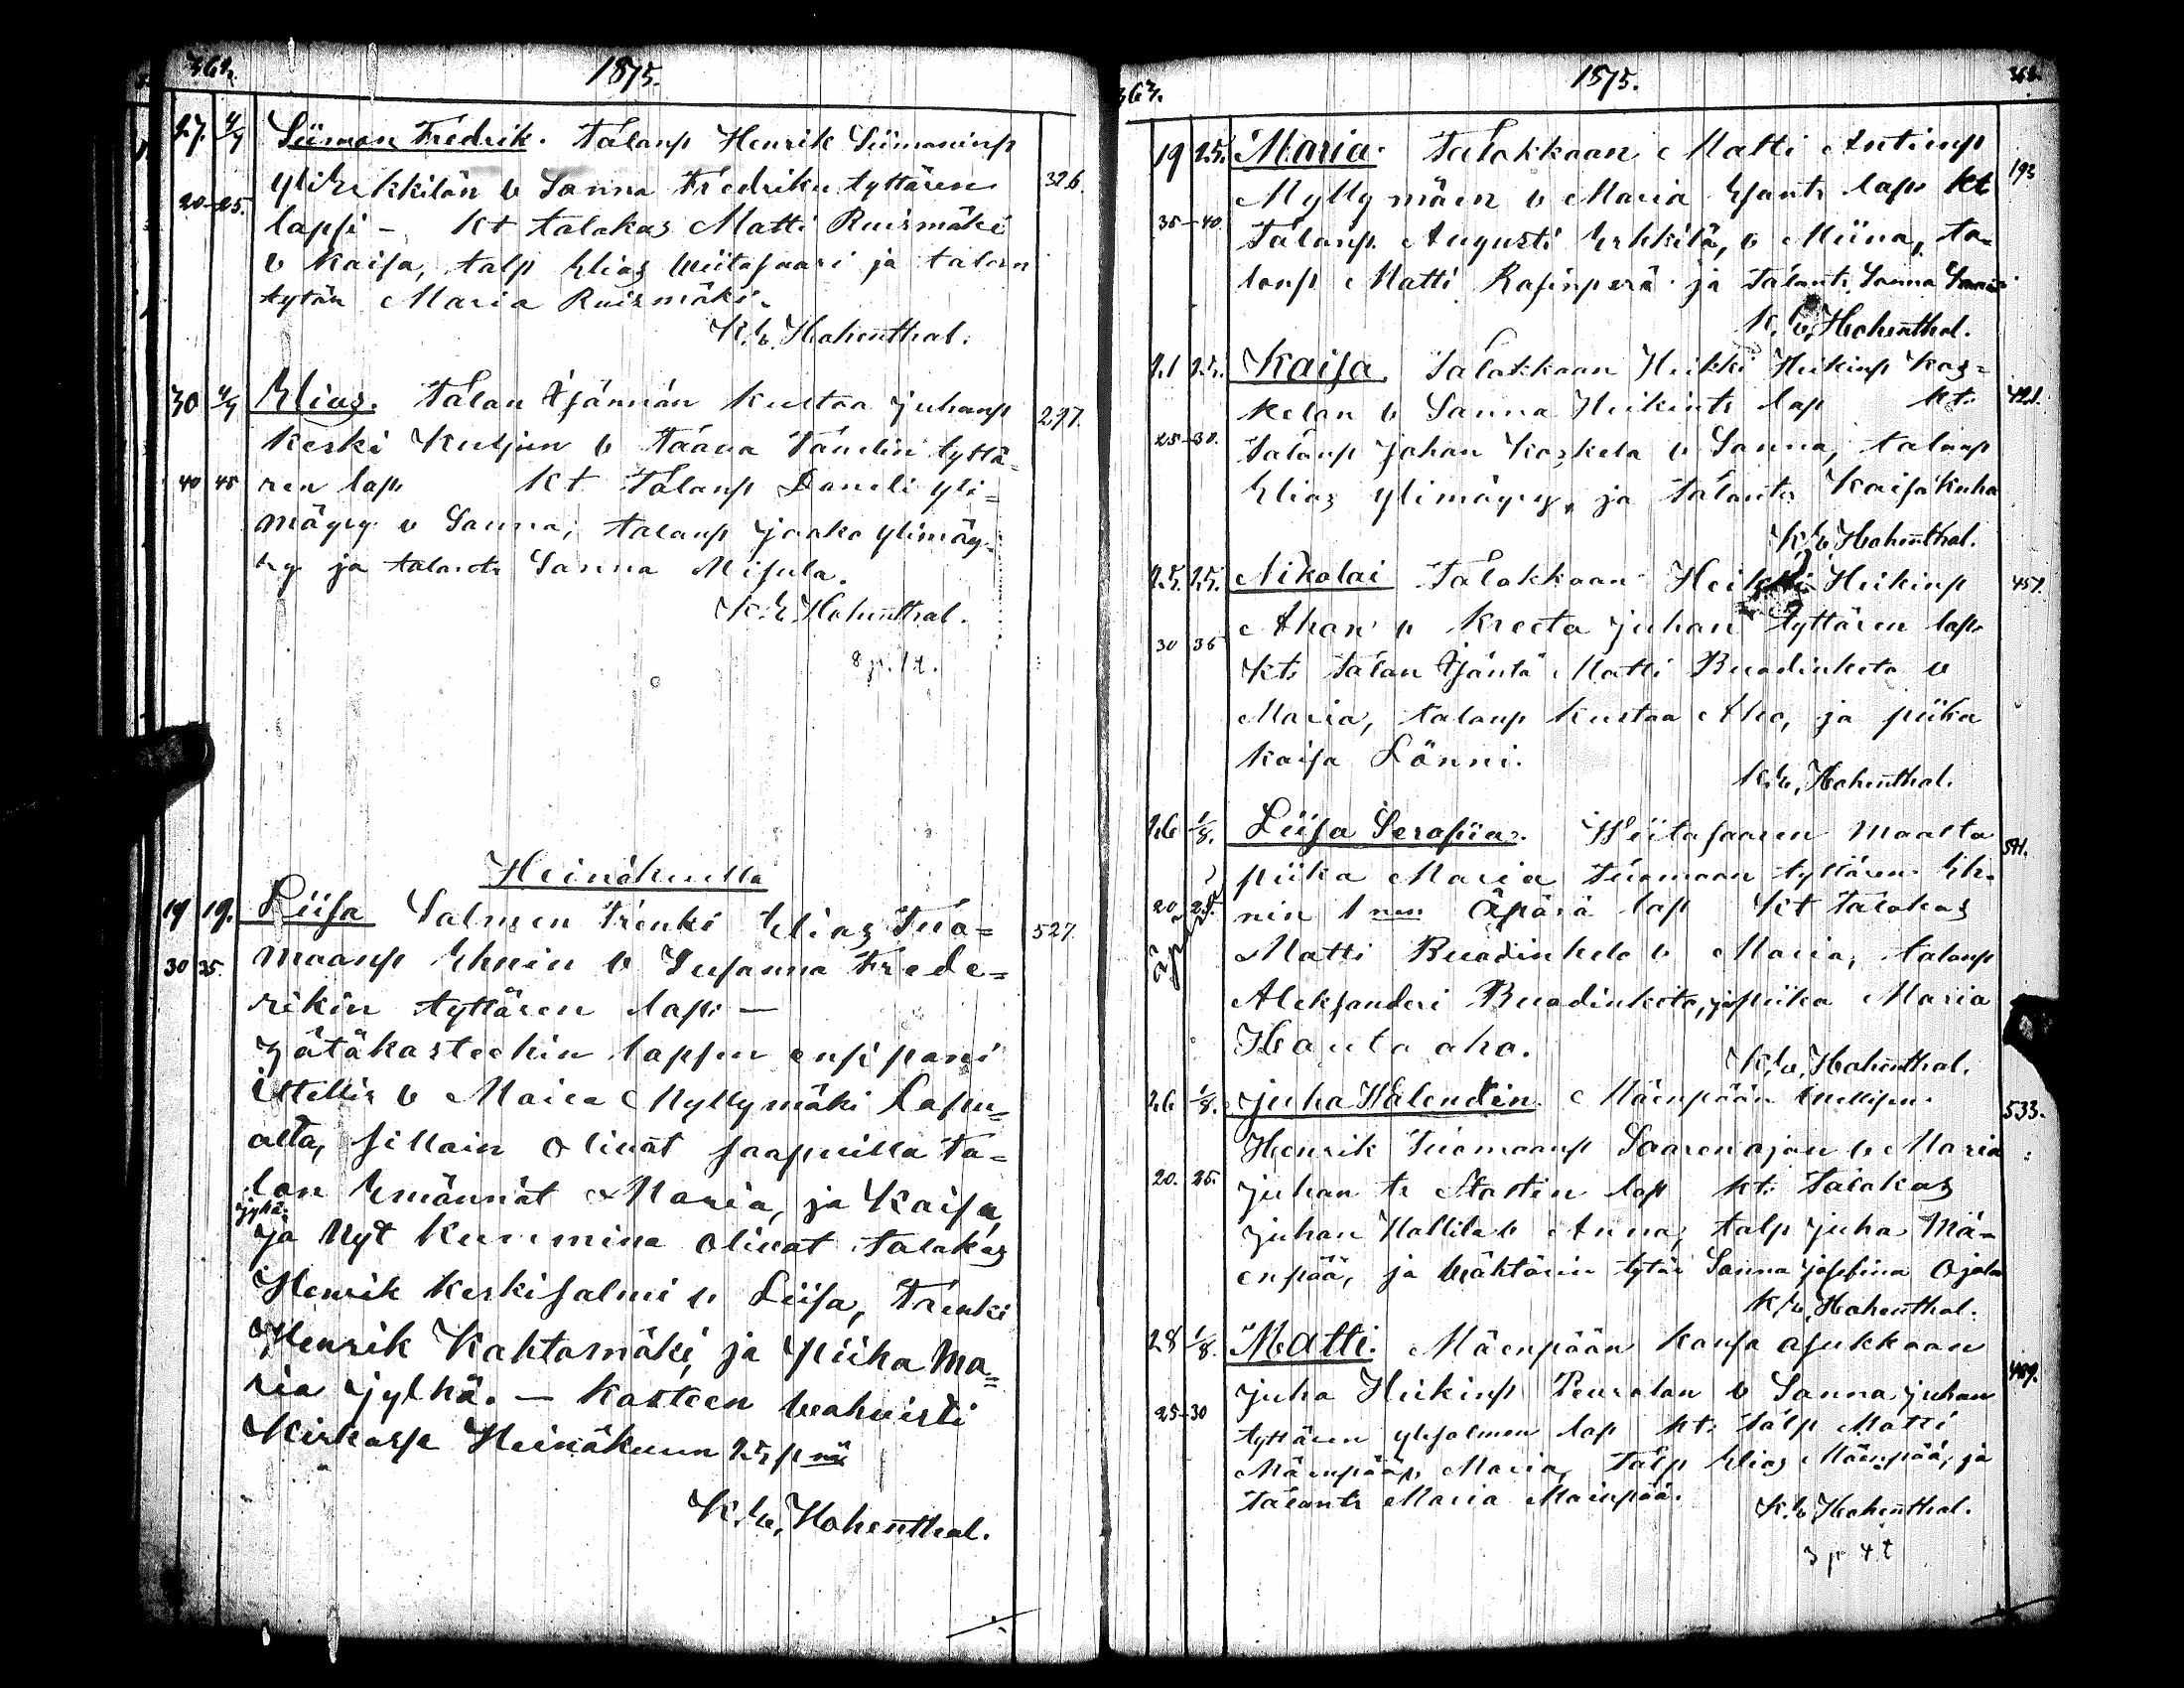 362.
1875.
27. 4/7 Siimon Fredrik. Talanp Henrik Siimoninp
yliErkkilän v Sanna Fredriku tyttären 326.
20-25.
lapsi - Kt talakas Matti Ruismäki
v Kaisa, talp Elias Wiitasaari ja talan
tytär Maria Ruismäki.
K. E. Hohenthal.
30 4/7 Elias. Talan Isännän Kustaa Juhanp 297.
Keski Kuljun v Taava Taneelin tyttä=
40 45 ren laps Kt Talanp Daneeli yli=
mäyry v Sanna, talanp Jaako Ylimäy=
ry ja talantr Sanna Misula.
K. E Hohenthal.
8 p. 1 t.
Heinäkuulla
19 19. Liisa Salmen Trenki Elias Tuo= 527.
30 35. maanp Ehnin v Susanna Frede=
rikin tyttären laps —
Hätäkasteehin lapsen ensi pani
ittellis v Maria Myllymäki Lapu=
alta, sillain olivat saapuilla ta=
lan Emännät Maria, ja Kaisa
jylhä
ja Nyt Kummina olivat talakas
Henrik Keskisalmi v Liisa, Trenki
Henrik Kahtamäki, ja Piika Ma=
ria jylhä. — Kasteen vahvisti
Kirkossa Heinäkuun 25 p nä
K. E. Hohenthal.
363.
1875.
19 25. Maria. Talakkaan Matti Antinp 193
Myllymäen v Maria Esantr laps Kt
35-40. Talanp. Augusti Erkkilä, v Miina, ta=
lanp Matti Rasinperä ja Talantr Sanna
K. E. Hohenthal.
21 25. Kaisa. Talakkaan Heikki Heikinp Kos=
kelan v Sanna Heikintr lap kt. 421.
25-30. Talanp Johan Koskela v Sanna, talanp
Elias Ylimäyry, ja talantr Kaisa Kuha
K. E Hohenthal.
25. 25. Nikolai Talakkaan Heikki Heikinp 457.
Ahon v Kreeta Juhan tyttären laps
30 35 Kt. Talan Isäntä Matti Buadinketo v
Maria, talanp Kustaa Aho, ja piika
Kaisa Lönni.
K. E. Hohenthal.
26 1/8. Liisa Serafiia. Wiitasaaren Maalta
piika Maria Tuomaan tyttären Eh= 541.
20 25. nin 1 nen Äpärä lap Kt Talakas
Matti Buadinketo v Maria, talanp
äpärä
Aleksanderi Buadinketo, ja piika Maria
Hauta aho.
K. E. Hohenthal.
26 1/8. Juha Walendin. Mäenpään Itnellisen 533.
Henrik Tuomaanp Saarenojan v Maria
20. 25. Juhan tr Mastin lap kt. Talakas
Juhan Hallila v Anna, talp Juha Mä=
enpää, ja Wähtärin tytär Sanna Josefina Ojala
K. E. Hohenthal.
28 1/8. Matti. Mäenpään Kansa asukkaan
Juha Heikinp Peuralan v Sanna Juhan
25-30 tyttären ylisalmen lap kt. Talp Matti
Mäenpää v Maria, Talp Elias Mäenpää, ja
talantr Maria Mäenpää.
K. E Hohenthal.
3 p 4 t